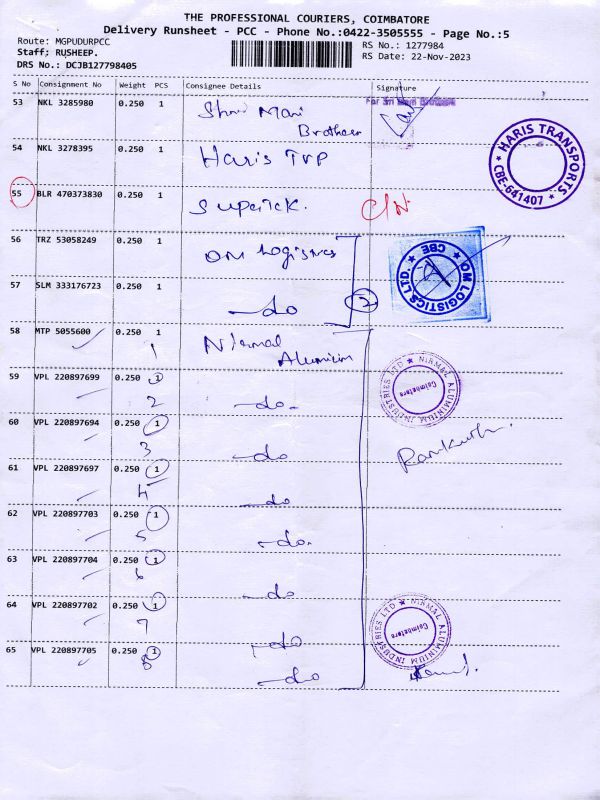 THE PROFESSIONAL COURIERS, COIMBATORE
Delivery Runsheet - PCC - Phone No.:0422-3505555 - Page No.:5
Route: MGPUDURPCC
RS No.: 1277984
Staff; RUSHEEP.
RS Date: 22-Nov-2023
DRS No.: DCJB127798405
S No Consignment No Weight PCS Consignee Details Signature
53 NKL 3285980 0.250 1 Shri Mani
Brothers
54 NKL 3278395 0.250 1 Haris TVP
HARIS TRANSPORTS
CBE-641407
55 BLR 470373830 0.250 1 C/N
56 TRZ 53058249 0.250 1 OM Logistics
OM LOGISTICS LTD.
CBE
57 SLM 333176723 0.250 1 -do 2
58 MTP 5055600 0.250 1 Nirmal
1 Aluminium
59 VPL 220897699 0.250 1
2 -do-
NIRMAL ALUMINIUM INDUSTRIES LTD
Coimbatore
60 VPL 220897694 0.250 1
3 -do
61 VPL 220897697 0.250 1
4 -do
62 VPL 220897703 0.250 1
5 -do.
63 VPL 220897704 0.250 1
6 -do
64 VPL 220897702 0.250 1
7 -do
NIRMAL ALUMINIUM INDUSTRIES LTD
Coimbatore
65 VPL 220897705 0.250 1
8 -do